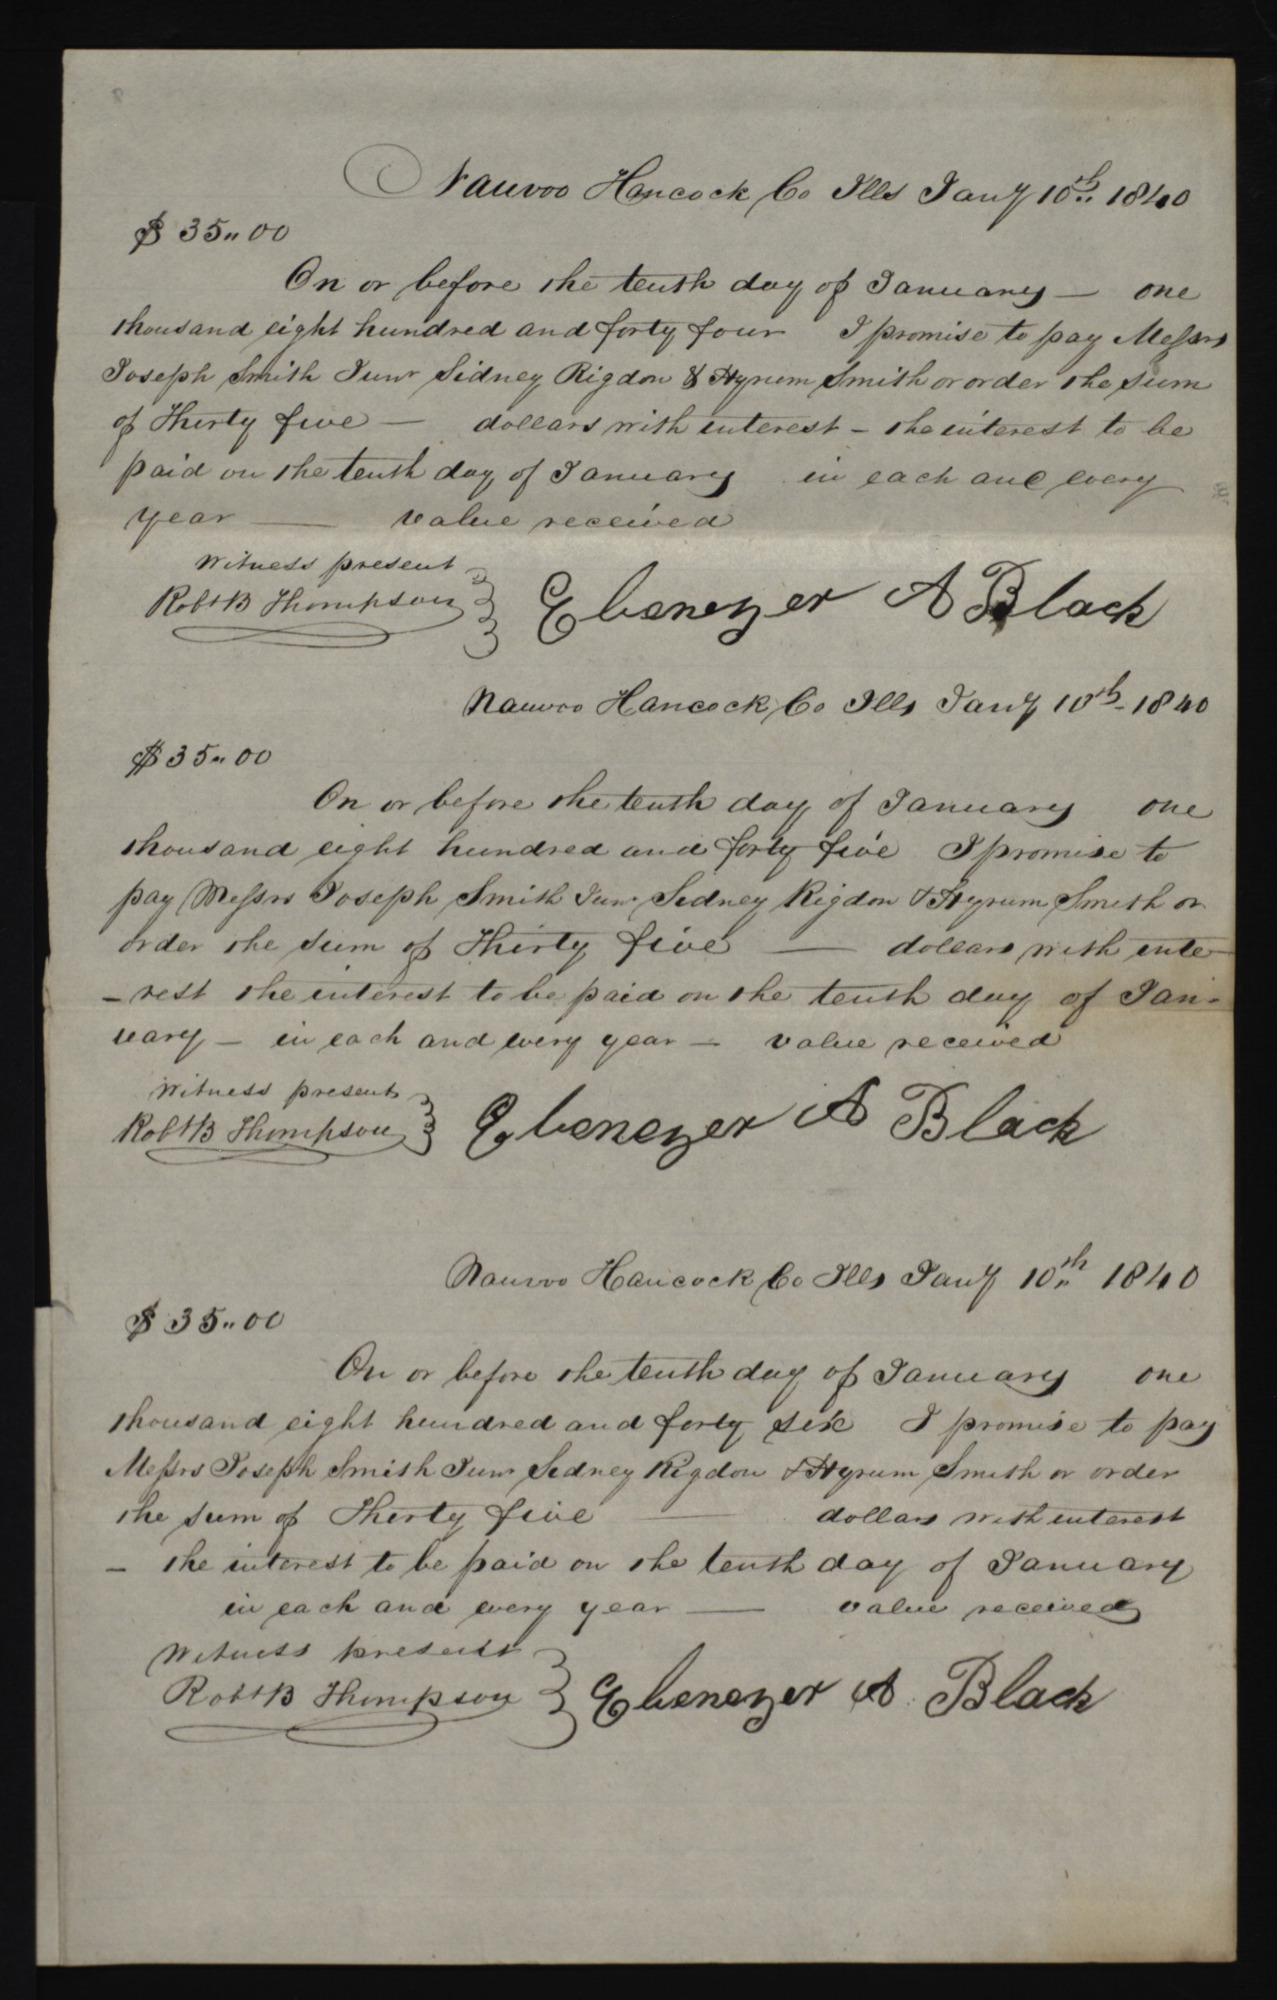 Nauvoo Hancock Co Ills Jany 10th 1840
$35"00
On or before the tenth day of January — one
thousand eight hundred and forty four I promise to pay Messrs
Joseph Smith Junr Sidney Rigdon & Hyrum Smith or order the sum
of Thirty five — dollars with interest – the interest to be
paid on the tenth day of January in each and every
year — value received
Witness present
Robt B Thompson
Ebenezer A Black
Nauvoo Hancock Co Ills Jany 10th 1840
$35"00
On or before the tenth day of January one
thousand eight hundred and forty five I promise to
pay Messrs Joseph Smith Junr Sidney Rigdon & Hyrum Smith or
order the sum of Thirty five — dollars with inte-
-rest the interest to be paid on the tenth day of Jan-
uary – in each and every year – value received
Witness present
Robt B Thompson
Ebenezer A Black
Nauvoo Hancock Co Ills Jany 10th 1840
$35"00
On or before the tenth day of January one
thousand eight hundred and forty six I promise to pay
Messrs Joseph Smith Junr Sidney Rigdon & Hyrum Smith or order
the sum of Thirty five — dollars with interest
– the interest to be paid on the tenth day of January
in each and every year — value received
Witness present
Robt B Thompson
Ebenezer A Black